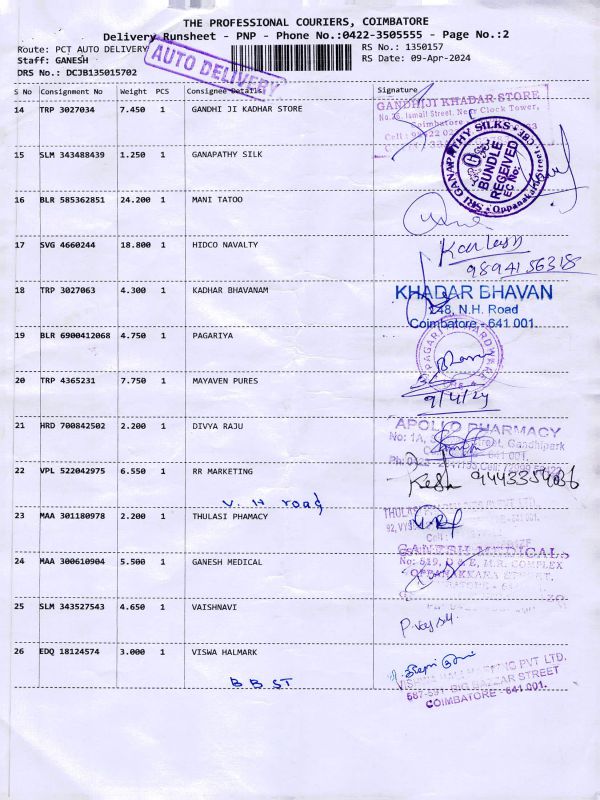 THE PROFESSIONAL COURIERS, COIMBATORE
Delivery Runsheet - PNP - Phone No.:0422-3505555 - Page No.:2
Route: PCT AUTO DELIVERY
RS No.: 1350157
Staff: GANESH
RS Date: 09-Apr-2024
DRS No.: DCJB135015702
AUTO DELIVERY
S No Consignment No Weight PCS Consignee Details Signature
14 TRP 3027034 7.450 1 GANDHI JI KADHAR STORE
GANDHIJI KHADAR STORE
No.26, Ismail Street, Near Clock Tower,
Coimbatore
15 SLM 343488439 1.250 1 GANAPATHY SILK
SRI GANAPATHY SILKS
BUNDLE
RECEIVED
16 BLR 585362851 24.200 1 MANI TATOO
17 SVG 4660244 18.800 1 HIDCO NAVALTY
Kailash
9894156318
18 TRP 3027063 4.300 1 KADHAR BHAVANAM
KHADAR BHAVAN
148, N.H. Road
Coimbatore - 641 001.
19 BLR 6900412068 4.750 1 PAGARIYA
PAGARIYA HARDWARE
20 TRP 4365231 7.750 1 MAYAVEN PURES
9/4/24
21 HRD 700842502 2.200 1 DIVYA RAJU
APOLLO PHARMACY
No: 1A, Street, Gandhipark
22 VPL 522042975 6.550 1 RR MARKETING
V. H road
23 MAA 301180978 2.200 1 THULASI PHAMACY
24 MAA 300610904 5.500 1 GANESH MEDICAL
GANESH MEDICALS
No: 519, D & E, M.R. COMPLEX
OPPANAKKARA STREET,
25 SLM 343527543 4.650 1 VAISHNAVI
26 EDQ 18124574 3.000 1 VISWA HALMARK
B B ST
PVT LTD.
587-591 BIG BAZZAR STREET
COIMBATORE - 641 001.